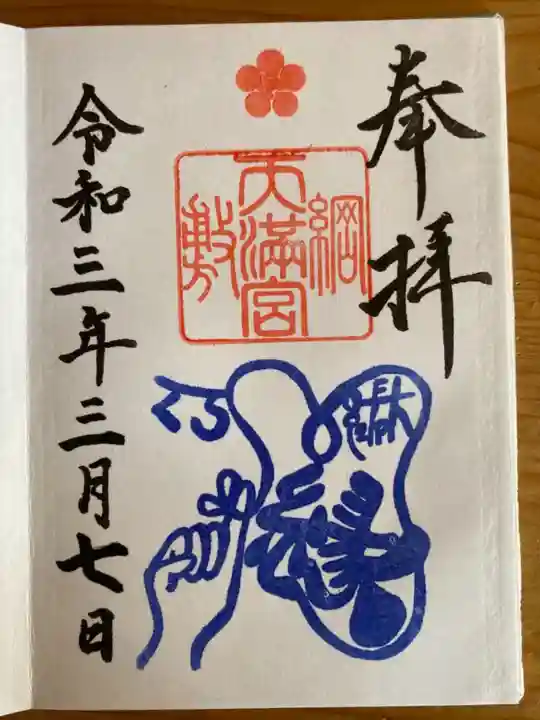 奉拝
綱
天満宮
敷
令和三年三月七日